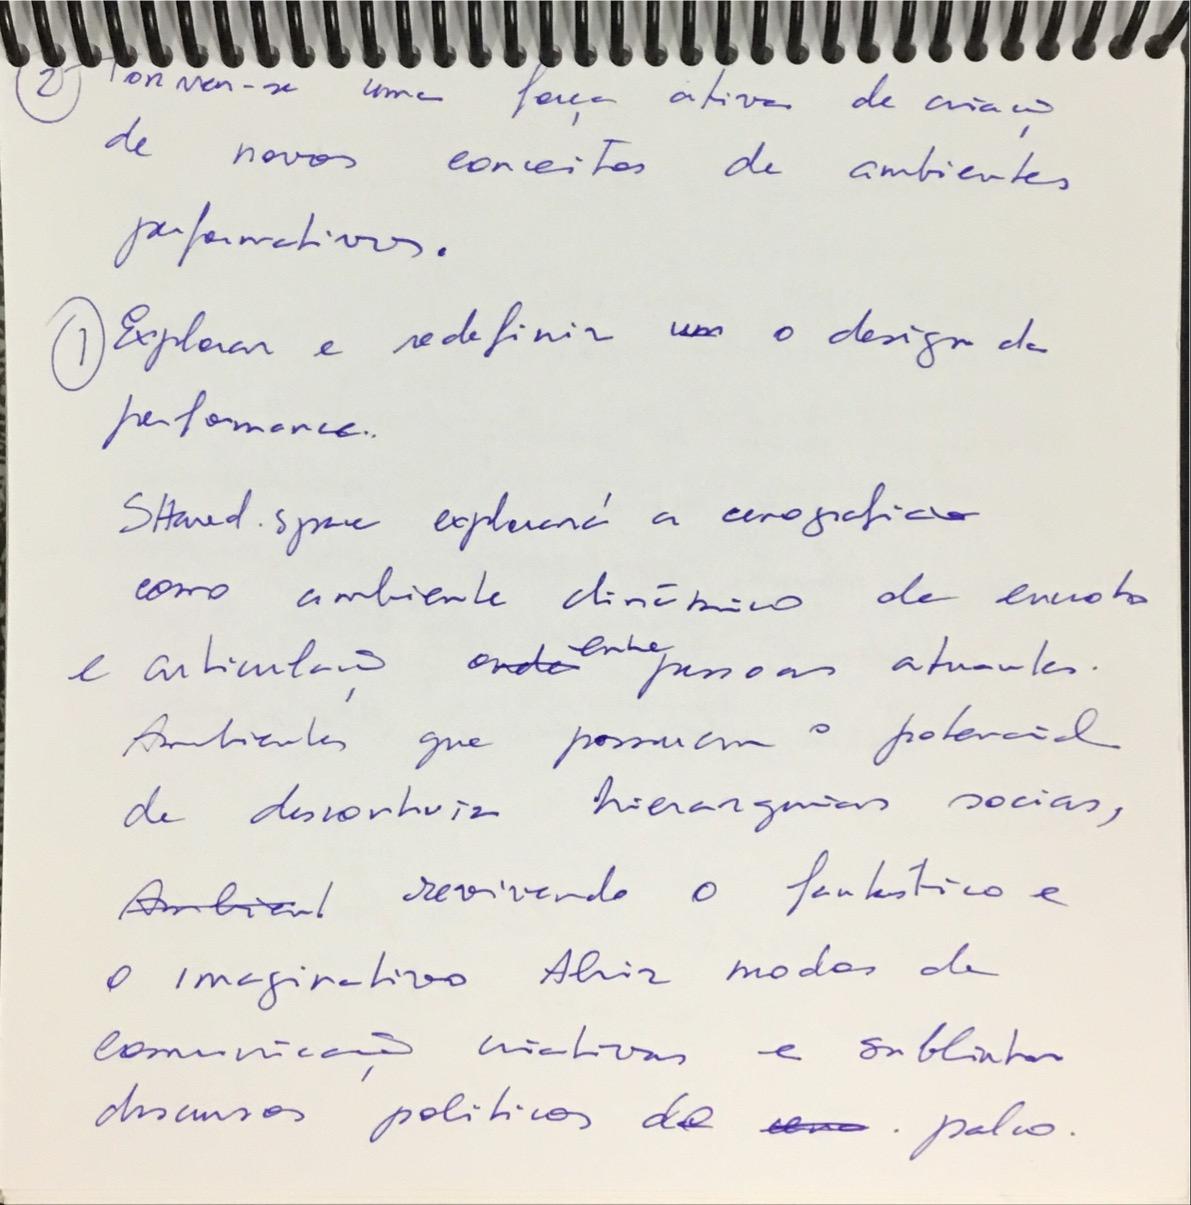 ② Tornar-se uma força ativa de criação
de novos conceitos de ambientes
performativos.
① Explorar e redefinir um o design da
performance.
SHared.space explorará a cenografia
como ambiente dinâmico de encontro
e articulação onde entre pessoas atuantes.
Ambientes que possuem o potencial
de desconstruir hierarquias socias,
Ambient revivendo o fantástico e
o imaginativo Abrir modos de
comunicação criativas e sublinhar
discursos politicos do palco.